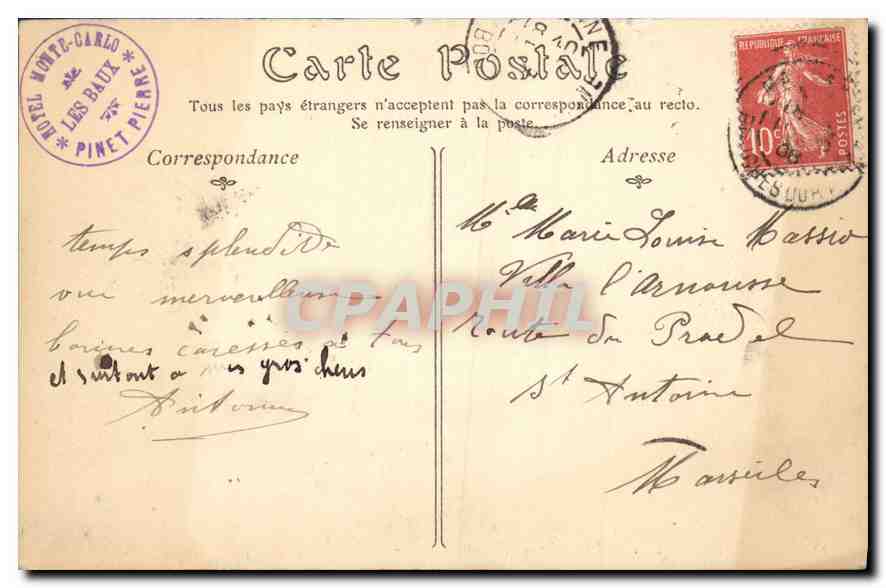 HOTEL MONTE-CARLO
LES BAUX
PINET PIERRE
Carte Postale
Tous les pays étrangers n'acceptent pas la correspondance au recto.
Se renseigner à la poste.
REPUBLIQUE FRANÇAISE
10c
POSTES
Correspondance
Adresse
temps splendide
vue merveilleuse
bonnes caresses à tous
et surtout a mes gros chéris
Antonin
Mlle Marie Louise Massio
Villa l'Arnousse
Route du Pradel
St Antoine
Marseilles
CPAPHIL